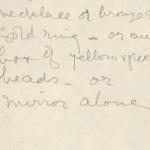 necklace of bronze
gold ring - or an
box of yellow
beads - or
mirror alone